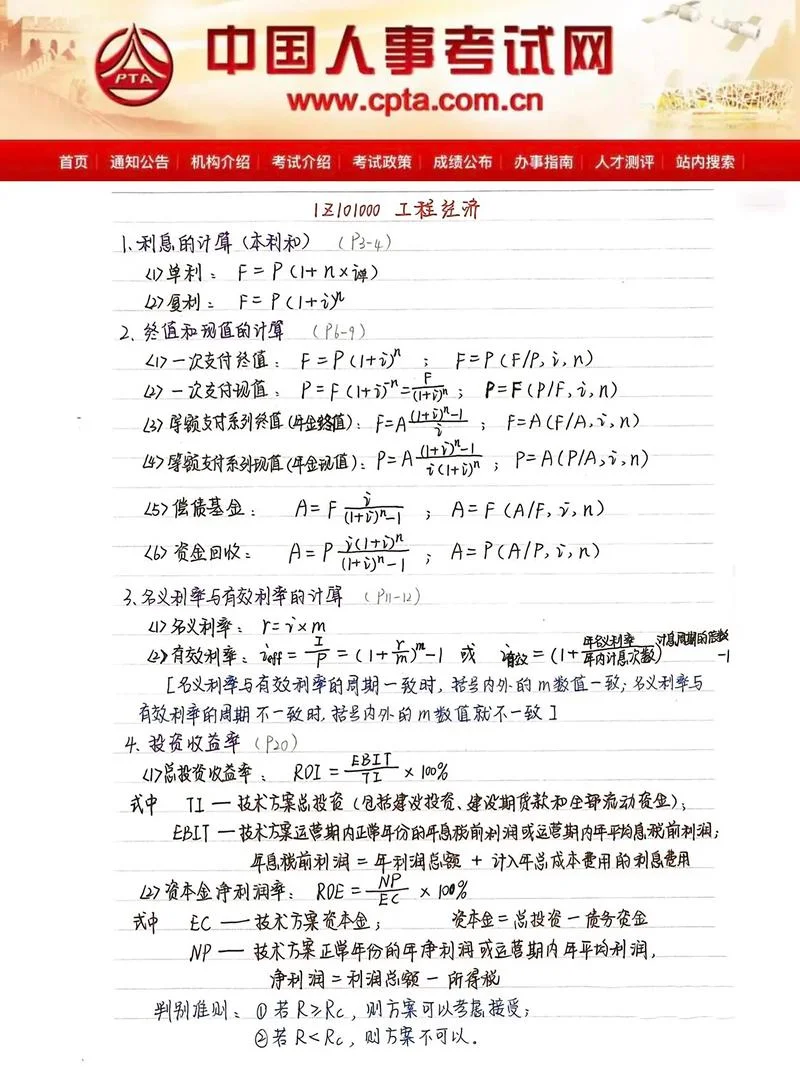 PTA
中国人事考试网
www.cpta.com.cn
首页 通知公告 机构介绍 考试介绍 考试政策 成绩公布 办事指南 人才测评 站内搜索
1Z101000 工程经济
1.利息的计算(本利和) (P3-4)
(1)单利: F=P(1+n×i单)
(2)复利: F=P(1+i)^n
2.终值和现值的计算 (P6-9)
(1)一次支付终值: F=P(1+i)^n ; F=P(F/P,i,n)
(2)一次支付现值: P=F(1+i)^-n=F/(1+i)^n ; P=F(P/F,i,n)
(3)等额支付系列终值(年金终值): F=A((1+i)^n-1)/i ; F=A(F/A,i,n)
(4)等额支付系列现值(年金现值): P=A((1+i)^n-1)/(i(1+i)^n) ; P=A(P/A,i,n)
(5)偿债基金: A=F i/((1+i)^n-1) ; A=F(A/F,i,n)
(6)资金回收: A=P i(1+i)^n/((1+i)^n-1) ; A=P(A/P,i,n)
3.名义利率与有效利率的计算 (P11-12)
(1)名义利率: r=i×m
(2)有效利率: ieff=I/P=(1+r/m)^m-1 或 i有效=(1+年名义利率/年内计息次数)^计息周期的倍数-1
[名义利率与有效利率的周期一致时,括号内外的m数值一致;名义利率与
有效利率的周期不一致时,括号内外的m数值就不一致]
4.投资收益率 (P20)
(1)总投资收益率: ROI=EBIT/TI×100%
式中 TI—技术方案总投资(包括建设投资、建设期贷款和全部流动资金);
EBIT—技术方案运营期内正常年份的年息税前利润或运营期内年平均息税前利润;
年息税前利润=年利润总额+计入年总成本费用的利息费用
(2)资本金净利润率: ROE=NP/EC×100%
式中 EC—技术方案资本金; 资本金=总投资-债务资金
NP—技术方案正常年份的年净利润或运营期内年平均利润,
净利润=利润总额-所得税
判别准则: ①若R≥Rc,则方案可以考虑接受;
②若R<Rc,则方案不可以.